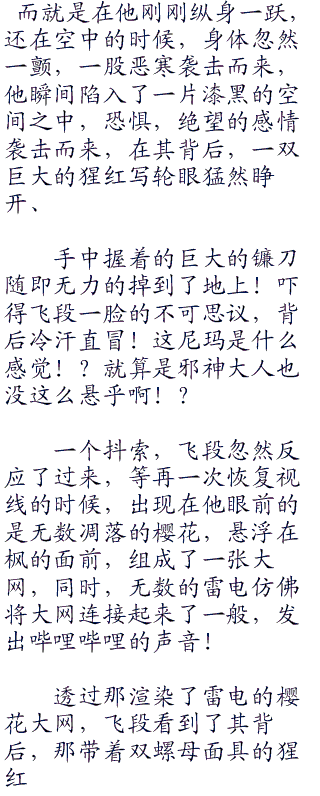 而就是在他刚刚纵身一跃，
还在空中的时候，身体忽然
一颤，一股恶寒袭击而来，
他瞬间陷入了一片漆黑的空
间之中，恐惧，绝望的感情
袭击而来，在其背后，一双
巨大的猩红写轮眼猛然睁
开、
手中握着的巨大的镰刀
随即无力的掉到了地上！吓
得飞段一脸的不可思议，背
后冷汗直冒！这尼玛是什么
感觉！？就算是邪神大人也
没这么悬乎啊！？
一个抖索，飞段忽然反
应了过来，等再一次恢复视
线的时候，出现在他眼前的
是无数凋落的樱花，悬浮在
枫的面前，组成了一张大
网，同时，无数的雷电仿佛
将大网连接起来了一般，发
出哔哩哔哩的声音！
透过那渲染了雷电的樱
花大网，飞段看到了其背
后，那带着双螺母面具的猩
红